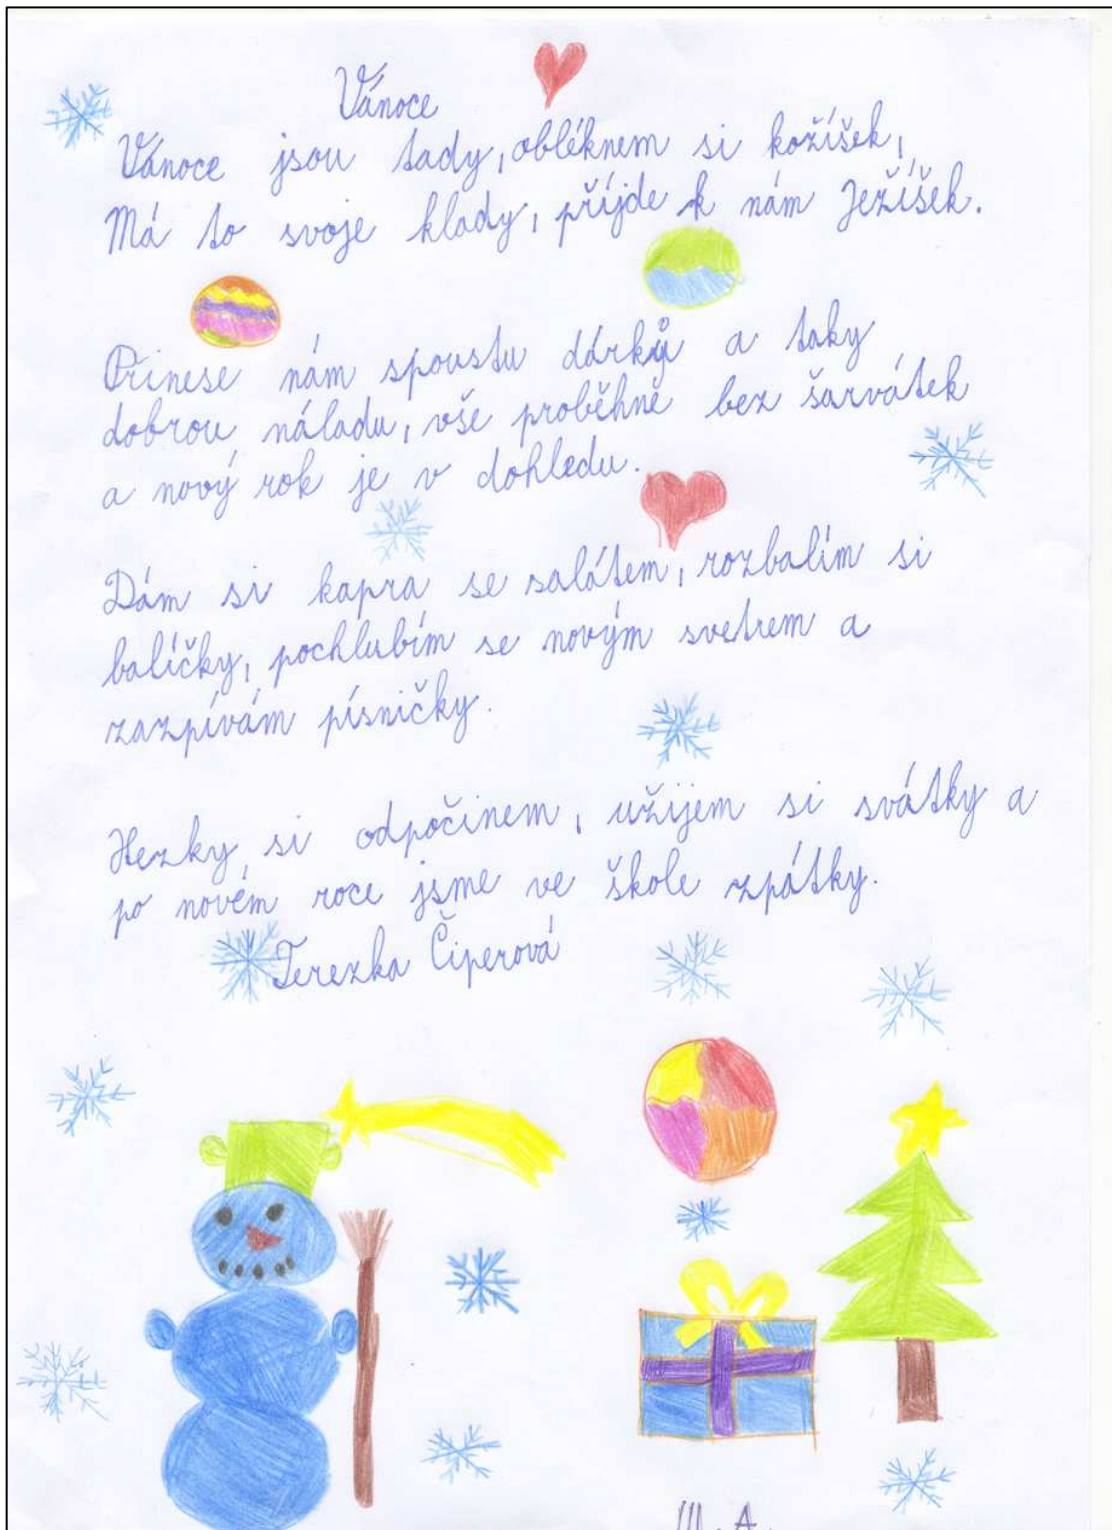 Vánoce
Vánoce jsou tady, obléknem si kožíšek,
Má to svoje klady, příjde k nám Ježíšek.
Přinese nám spoustu dárků a taky
dobrou náladu, vše proběhně bez šarvátek
a nový rok je v dohledu.
Dám si kapra se salátem, rozbalím si
balíčky, pochlubím se novým svetrem a
zazpívám písničky.
Hezky si odpočinem, užijem si svátky a
po novém roce jsme ve škole zpátky.
Terezka Čiperová
III. A.